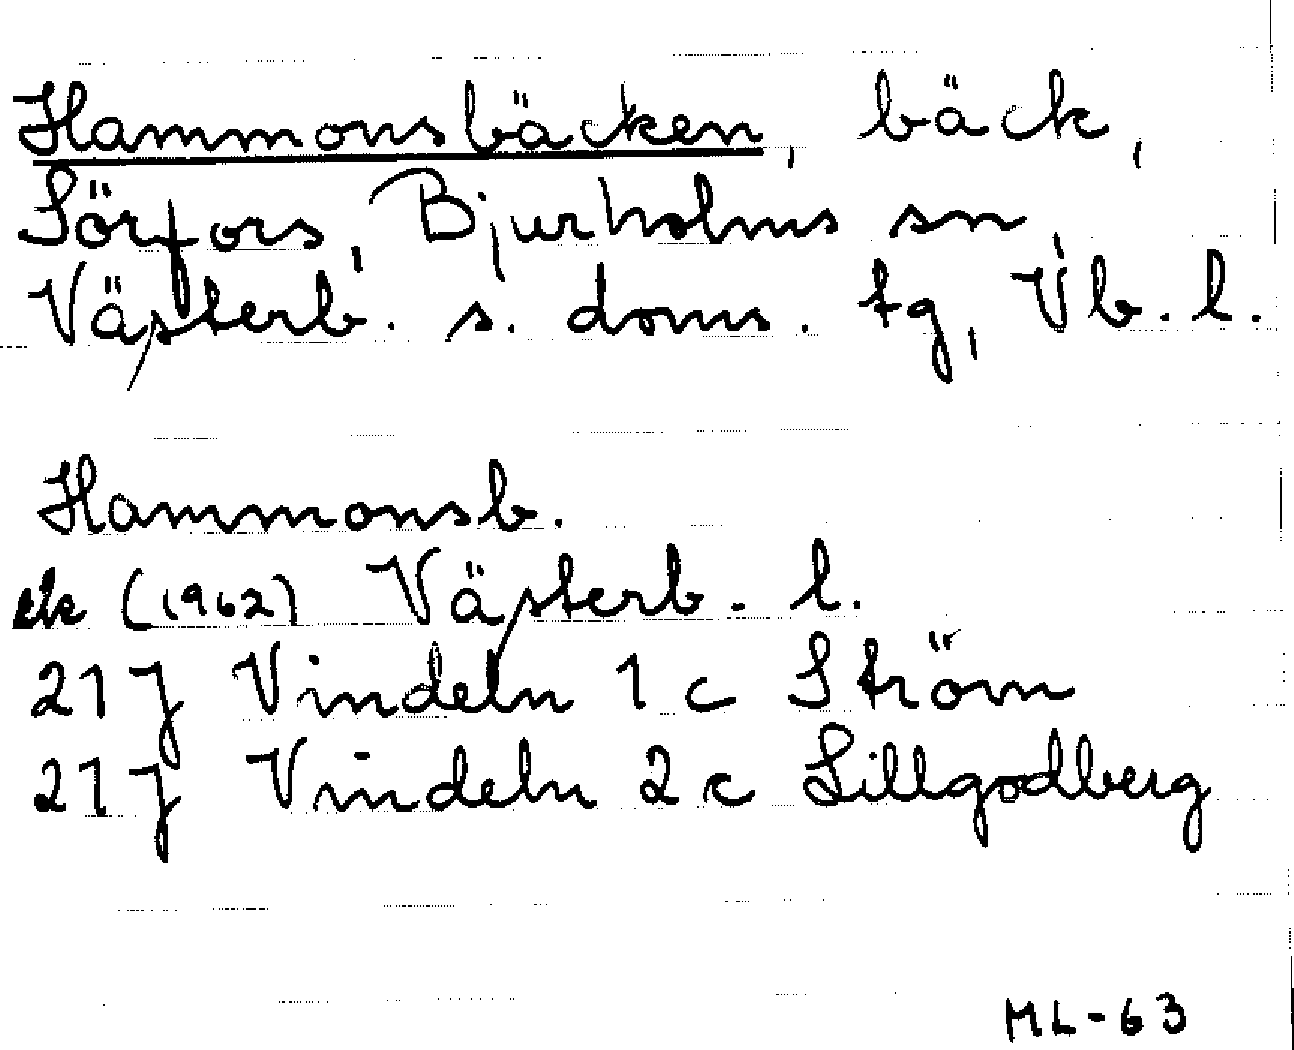 Hammonsbäcken, bäck,
Sörfors, Bjurholms sn,
Västerb. s. doms. tg, Vb. l.
Hammonsb.
ek (1962) Västerb. l.
21 J Vindeln 1 c Ström
21 J Vindeln 2 c Lillgodberg
ML-63